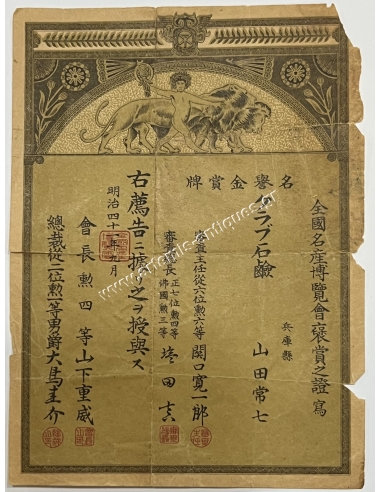 全國名産博覽會褒賞之證 寫
名譽金賞牌
兵庫縣
クラブ石鹼 山田常七
審査主任從六位勲六等 関口寛一郎
審査長 正七位勲四等 佛國勲三等 塩田真
右薦告ニ據リ之ヲ授與ス
明治四十 年九月
會長勲四等山下重威
總裁從二位勲一等男爵大鳥圭介